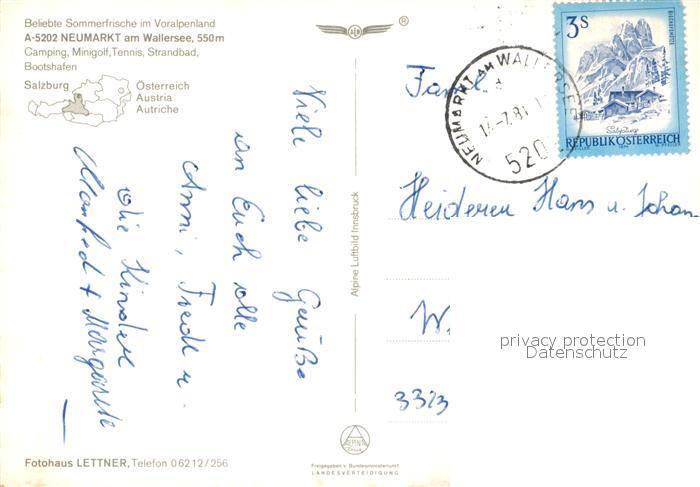 Beliebte Sommerfrische im Voralpenland
A-5202 NEUMARKT am Wallersee, 550m
Camping, Minigolf, Tennis, Strandbad,
Bootshafen
Salzburg
Österreich
Austria
Autriche
Viele liebe Grüße
an Euch alle
Anni, Fredl u.
die Kinder
Manfred + Margarete
Fotohaus LETTNER, Telefon 06212/256
Alpine Luftbild Innsbruck
ALPINE
Freigegeben v. Bundesministerium f.
LANDESVERTEIDIGUNG
®
NEUMARKT AM WALLERSEE
520
3S
REPUBLIK ÖSTERREICH
Heideren Hans u. Johan
W.
3323
privacy protection
Datenschutz